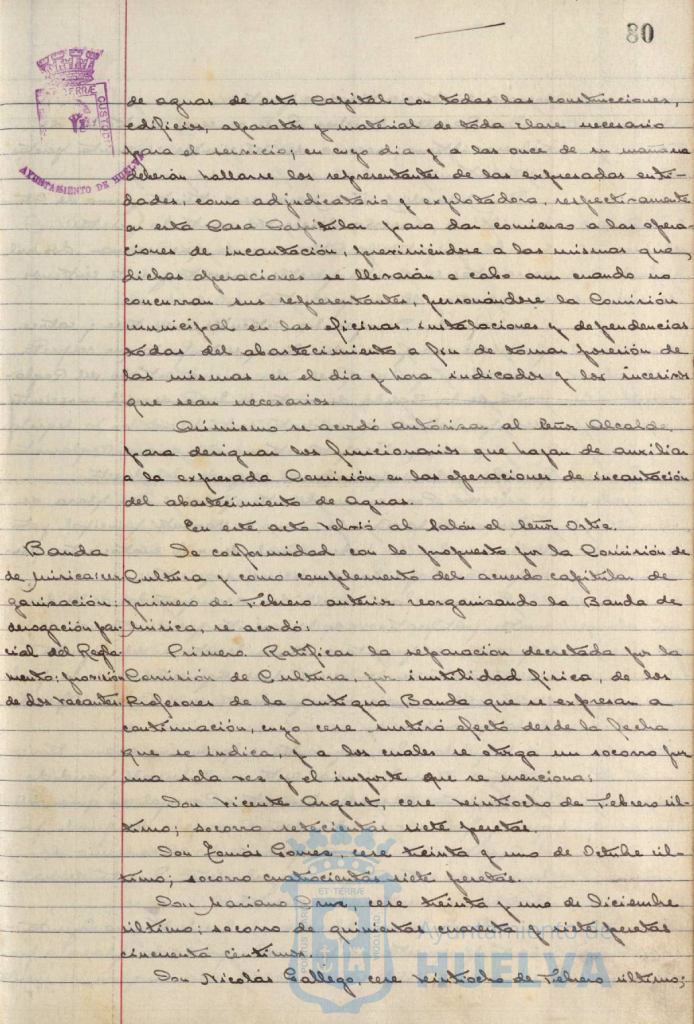 80
AYUNTAMIENTO DE HUELVA
de aguas de esta Capital con todas las construcciones,
edificios, aparatos y material de toda clase necesario
para el servicio; en cuyo dia y a las once de su mañana
deberán hallarse los representantes de las expresadas enti-
dades, como adjudicatario y explotadora, respectivamente
en esta Casa Capitular para dar comienzo a las opera-
ciones de incautación, previniéndose a las mismas que
dichas operaciones se llevarán a cabo aun cuando no
concurran sus representantes, personándose la Comisión
municipal en las oficinas, instalaciones y dependencias
todas del abastecimiento a fin de tomar posesión de
las mismas en el dia y hora indicados y los
que sean necesarios.
Asimismo se acordó autorizar al Señor Alcalde,
para designar los funcionarios que hayan de auxiliar
a la expresada Comisión en las operaciones de incautación
del abastecimiento de Aguas.
En este acto volvió al Salón el Señor Ortiz.
Banda
de Música: reor
ganización:
derogación par-
cial del Regla-
mento; provisión
de dos vacantes
De conformidad con lo propuesto por la Comisión de
Cultura y como complemento del acuerdo capitular de
primero de Febrero anterior reorganizando la Banda de
Música, se acordó:
Primero. Ratificar la separación decretada por la
Comisión de Cultura, por inutilidad física, de los
Profesores de la antigua Banda que se expresan a
continuación, cuyo cese surtirá efecto desde la fecha
que se indica, y a los cuales se otorga un socorro por
una sola vez y el importe que se menciona:
Don Vicente Argent, cese veintiocho de Febrero úl-
timo; socorro setecientas siete pesetas.
Don Tomás Gomez, cese treinta y uno de Octubre úl-
timo; socorro cuatrocientas siete pesetas.
Don Mariano Cruz, cese treinta y uno de Diciembre
último; socorro de quinientas cuarenta y siete pesetas
cincuenta centimos.
Don Nicolás Gallego, cese veintiocho de Febrero último;
Ayuntamiento de
HUELVA